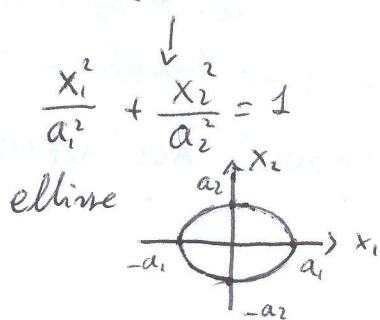 x₁²/a₁² + x₂²/a₂² = 1
ellisse
x₂
a₂
x₁
-a₁
a₁
-a₂